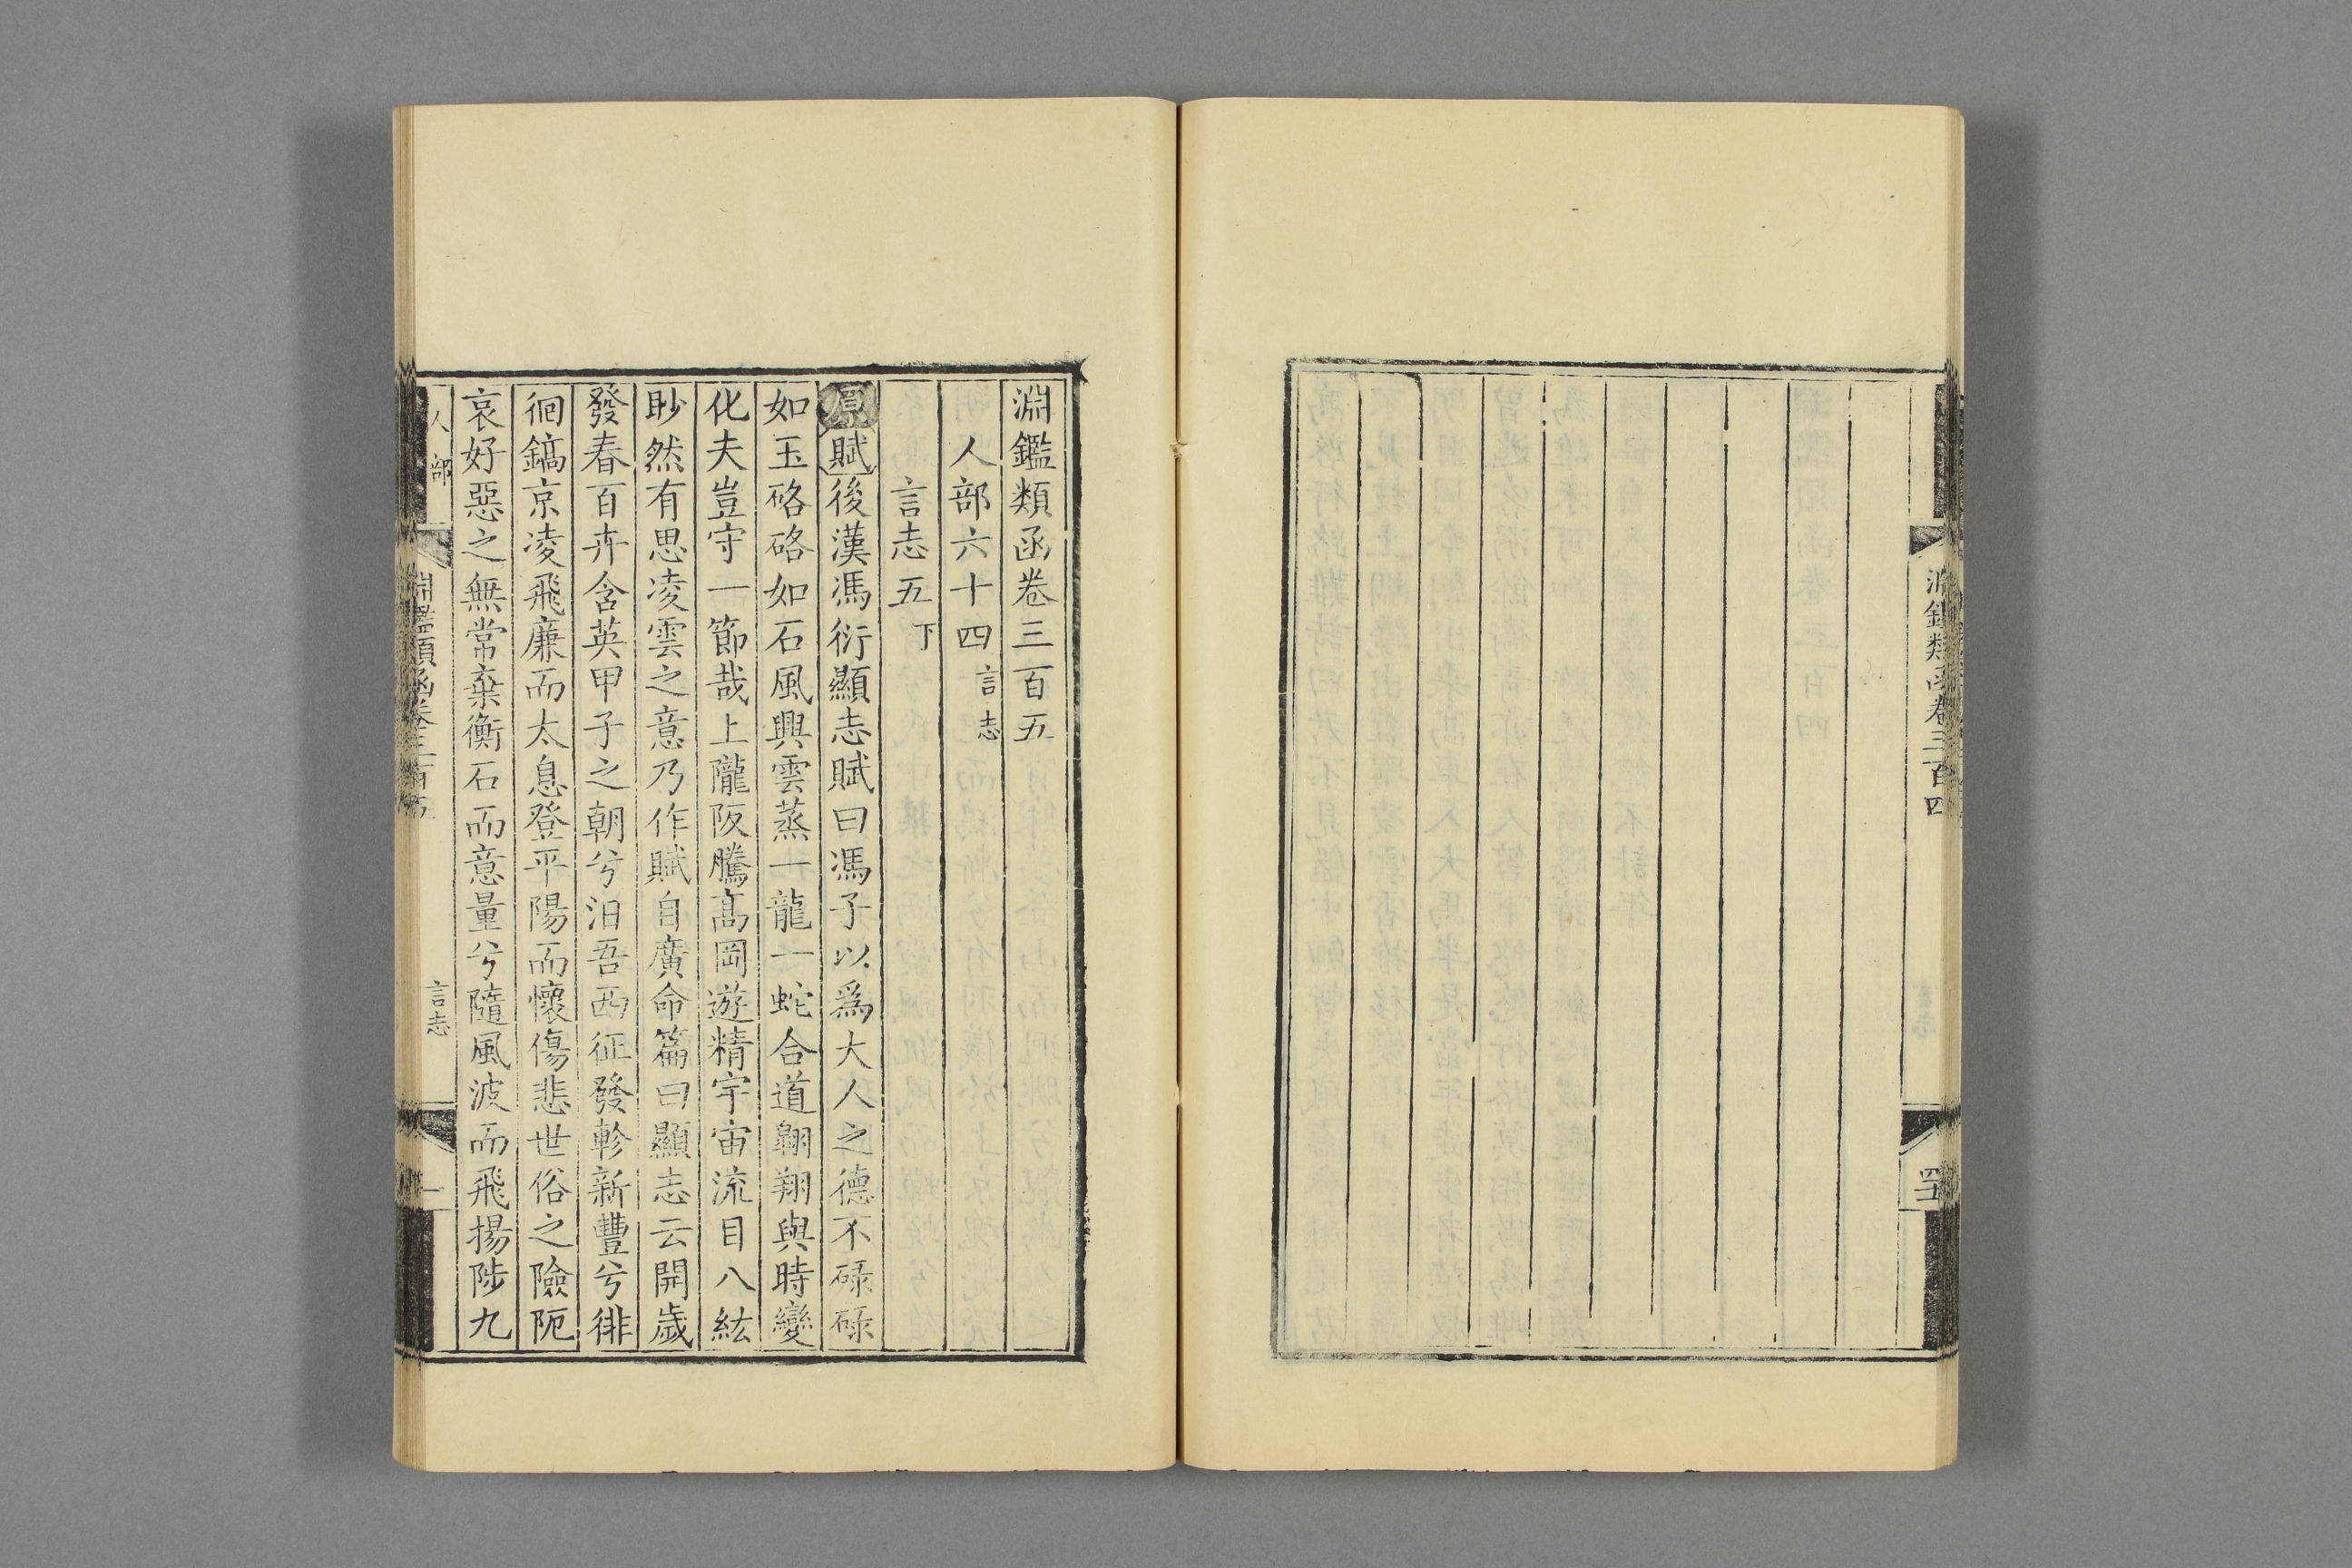 淵鑑類函卷三百四
淵鑑類函卷三百五
人部六十四言志
言志五下
原賦後漢馮衍顯志賦曰馮子以爲大人之德不碌碌
如玉硌硌如石風興雲蒸一龍一蛇合道翱翔與時變
化夫豈守一節哉上隴阪騰高岡遊精宇宙流目八紘
眇然有思凌雲之意乃作賦自廣命篇曰顯志云開歲
發春百卉含英甲子之朝兮汨吾西征發軫新豐兮徘
徊鎬京凌飛廉而太息登平陽而懷傷悲世俗之險阨
哀好惡之無常棄衡石而意量兮隨風波而飛揚陟九
人部
淵鑑類函卷三百五
言志
一